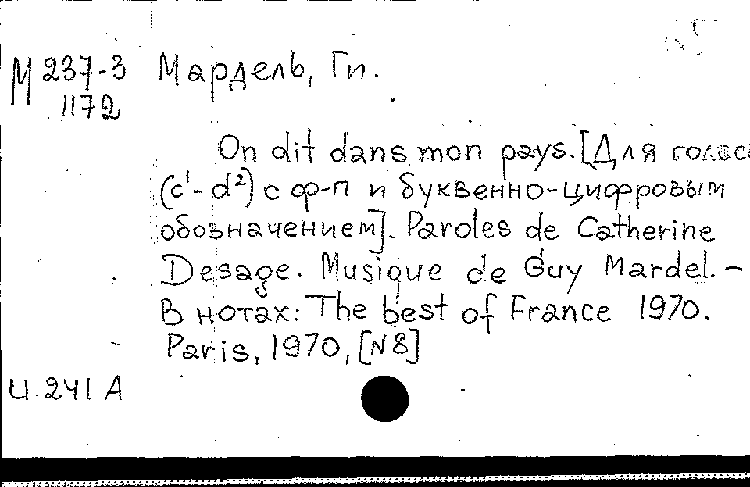 М 237-3 Мардель, Ги.
1172
On dit dans mon pays. [Для голос
(c¹-d²) с ф-п и буквенно-цифровым
обозначением]. Paroles de Catherine
Desage. Musique de Guy Mardel. –
В нотах: The best of France 1970.
Paris, 1970, [N8]
И 241 А